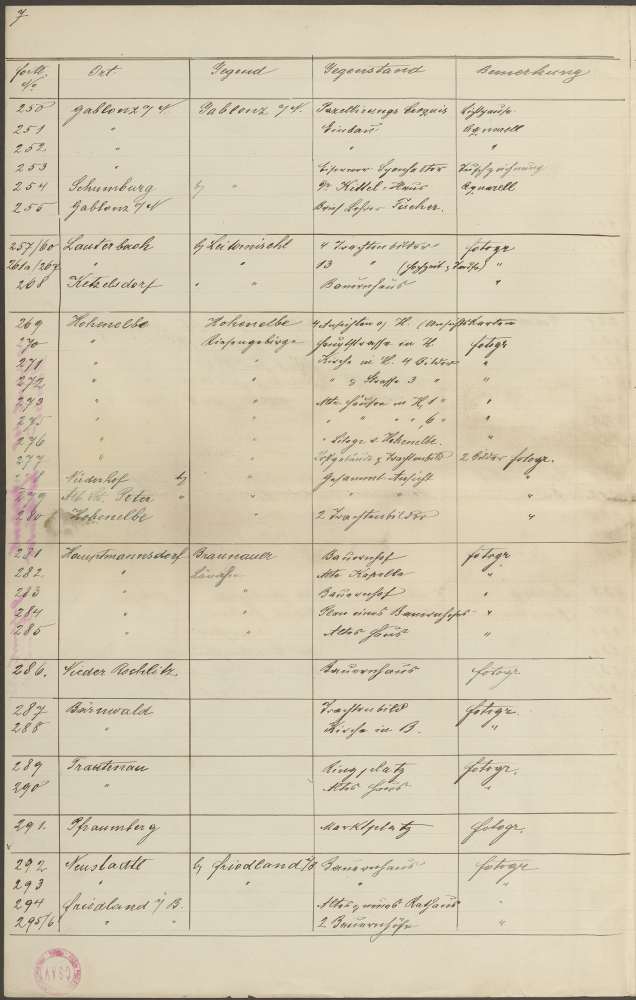 7
fortl. No. Ort Gegend Gegenstand Bemerkung
250 Gablonz a/N. Gablonz a/N. Parzellirungs Lichtpause
251 " Einbau Aquarell
252 " " "
253 " Eiserner Tuschzeichnung
254 Schumburg b/ " Dr. Kittel-Haus Aquarell
255 Gablonz a/N Tücher.
257/60 Lauterbach b/ Leitomischl 4 Trachtenbilder fotogr
261a/267 " " 13 " (Hochzeit & Taufe) "
268 Ketzelsdorf " " Bauernhaus "
269 Hohenelbe Hohenelbe 4 Ansichten v. H. (Ansichtskarten
270 " Riesengebirge Hauptstrasse in H. fotogr
271 " " Kirche in H. 4 Bilder "
272 " " " & Strasse 3 " "
273 " " Alte Häuser in H. 1 " "
275 " " " " " " 6 "
276 " " " v Hohenelbe. "
277 " " & Trachtenbild 2 Bilder fotogr.
278 Niederhof b/ " Gesammt-Ansicht "
279 St. Peter " " " " "
280 Hohenelbe " 2 Trachtenbilder "
281 Hauptmannsdorf Braunauer Bauernhof fotogr
282 " Ländchen Alte Kapelle "
283 " " Bauernhof "
284 " " Plan eines Bauernhofes "
285 " " Altes Haus "
286. Nieder Rochlitz. Bauernhaus fotogr
287 Bärnwald Trachtenbild fotogr.
288 " Kirche in B. "
289 Trautenau Ringplatz fotogr.
290 " Altes Haus "
291. Pfraumberg Marktplatz fotogr.
292 Neustadtl b/ Friedland i/B Bauernhaus fotogr
293 " " " "
294 Friedland i/B. Altes & neues Rathaus "
295/6 " " 2 Bauernhöfe "